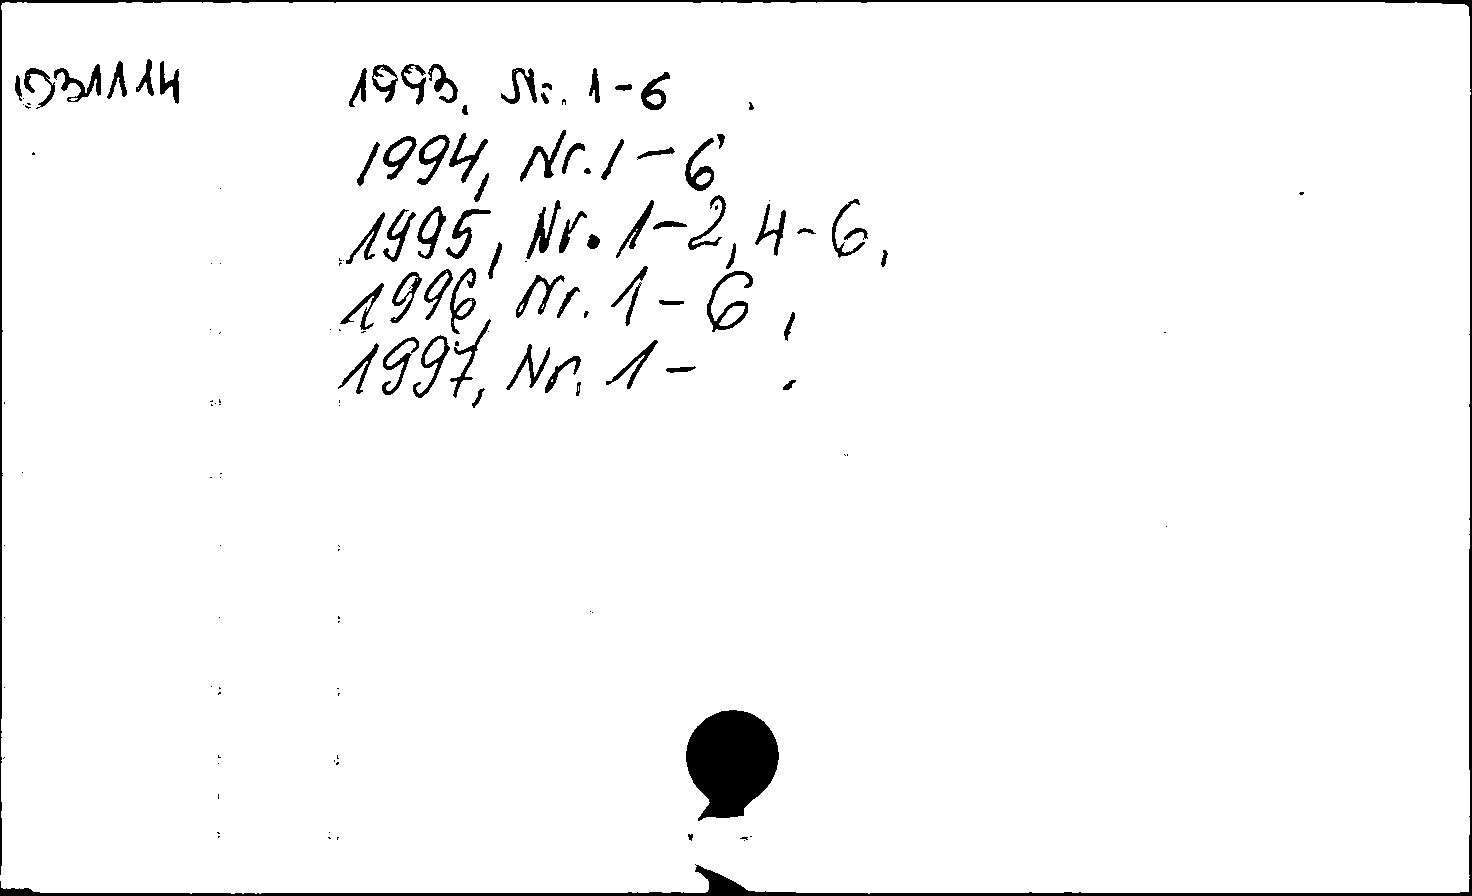 031114 1993, Nr. 1-6
1994, Nr. 1-6
1995, Nr. 1-2, 4-6,
1996, Nr. 1-6,
1997, Nr. 1-